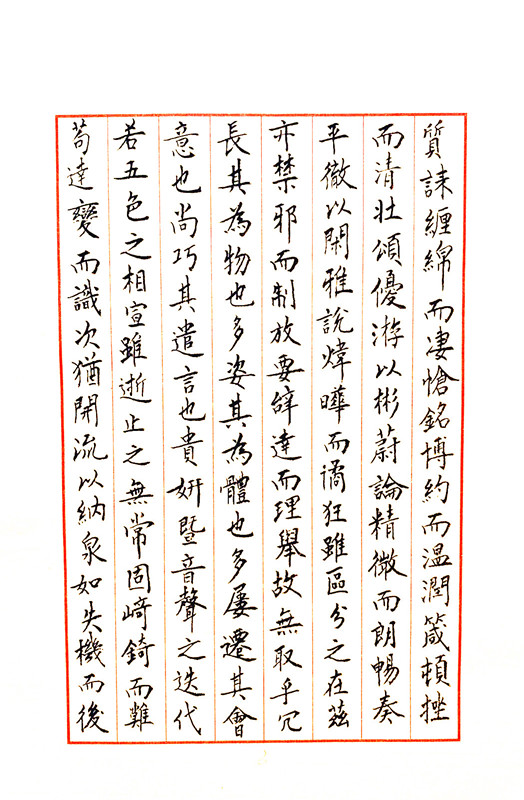 質誄纏綿而凄愴銘博約而温潤箴頓挫
而清壯頌優游以彬蔚論精微而朗暢奏
平徹以閑雅說煒曄而譎狂雖區分之在茲
亦禁邪而制放要辞達而理舉故無取乎冗
長其為物也多姿其為體也多屢遷其會
意也尚巧其遣言也貴妍暨音聲之迭代
若五色之相宣雖逝止之無常固崎錡而難
苟達變而識次猶開流以納泉如失機而後